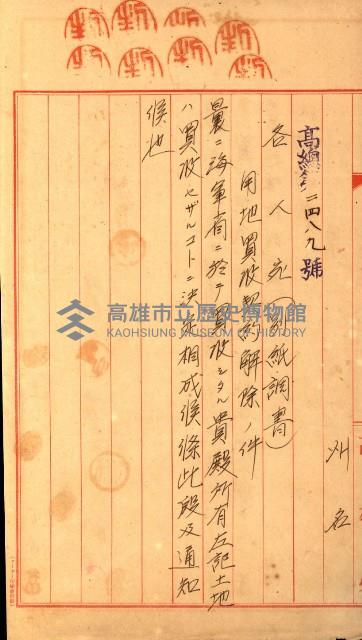 高總第二四八九號
州名
各人宛(別紙調書)
用地買收契約解除ノ件
曩ニ海軍省ニ於テ買收シタル貴殿所有左記土地
ハ買收セザルコトニ決定相成候條此段及通知
候也
高雄市立歷史博物館
KAOHSIUNG MUSEUM OF HISTORY